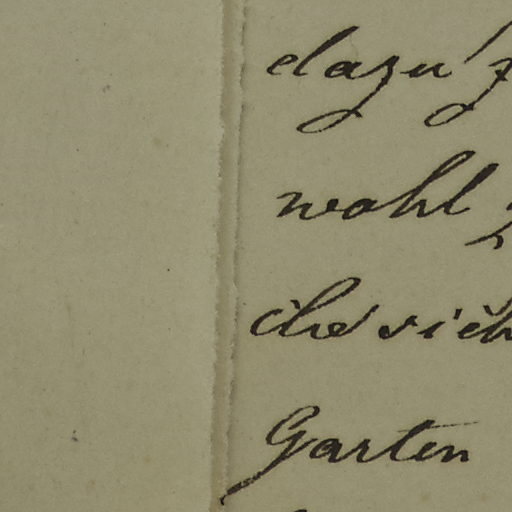 dazu
wohl
che sich
Garten